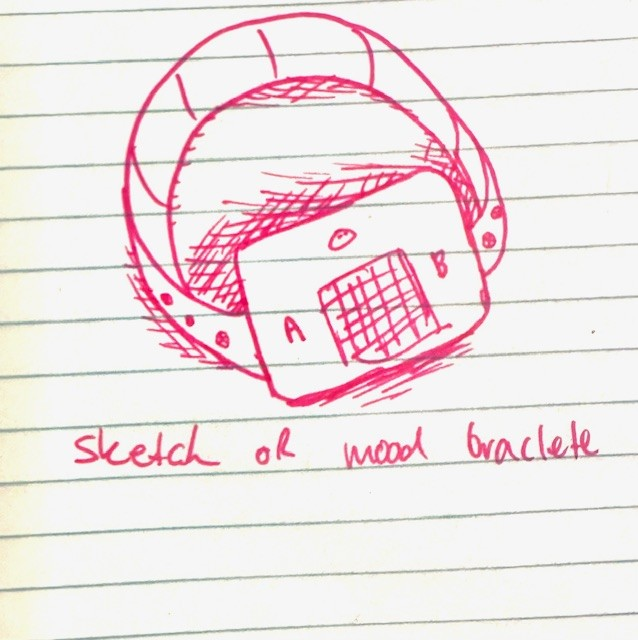 A
B
sketch of mood braclete